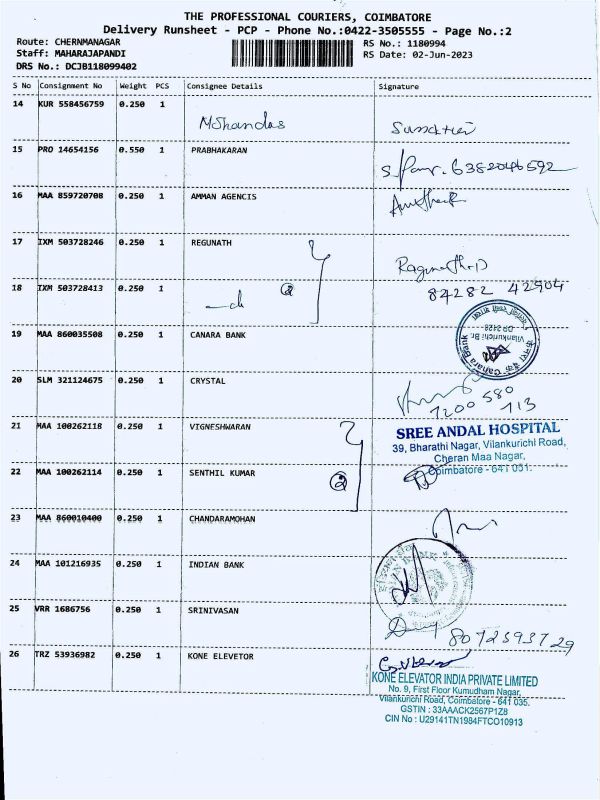 THE PROFESSIONAL COURIERS, COIMBATORE
Delivery Runsheet - PCP - Phone No.:0422-3505555 - Page No.:2
Route: CHERNMANAGAR
RS No.: 1180994
Staff: MAHARAJAPANDI
RS Date: 02-Jun-2023
DRS No.: DCJB118099402
S No Consignment No Weight PCS Consignee Details Signature
14 KUR 558456759 0.250 1
15 PRO 14654156 0.550 1 PRABHAKARAN
6382046592
16 MAA 859720708 0.250 1 AMMAN AGENCIS
17 IXM 503728246 0.250 1 REGUNATH
18 IXM 503728413 0.250 1
84282 42904
19 MAA 860035508 0.250 1 CANARA BANK
Canara Bank
Vilankurichi Br.
20 SLM 321124675 0.250 1 CRYSTAL
7200 580
113
21 MAA 100262118 0.250 1 VIGNESHWARAN
SREE ANDAL HOSPITAL
39, Bharathi Nagar, Vilankurichi Road,
Cheran Maa Nagar,
Coimbatore - 641 051.
22 MAA 100262114 0.250 1 SENTHIL KUMAR
23 MAA 860010400 0.250 1 CHANDARAMOHAN
24 MAA 101216935 0.250 1 INDIAN BANK
25 VRR 1686756 0.250 1 SRINIVASAN
8072593729
26 TRZ 53936982 0.250 1 KONE ELEVETOR
KONE ELEVATOR INDIA PRIVATE LIMITED
No. 9, First Floor Kumudham Nagar,
Vilankurichi Road, Coimbatore - 641 035.
GSTIN : 33AAACK2567P1Z8
CIN No : U29141TN1984FTCO10913